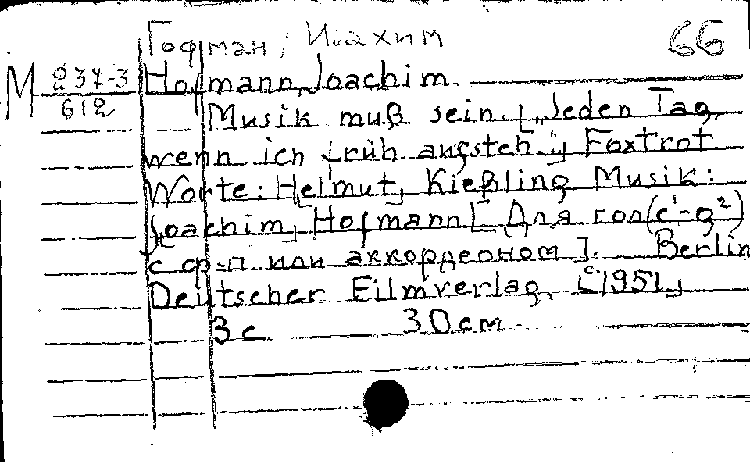 Гофман, Иоахим 66
М 237-3 Hofmann, Joachim.
612 Musik muß sein. [„Jeden Tag,
wenn ich früh aufsteh."] Foxtrot
Worte: Helmut, Kießling Musik:
Joachim, Hofmann [Для гол (c¹-g²)
с ф-п или аккордеоном]. Berlin
Deutscher Filmverlag, [1951]
3 с 30 см.